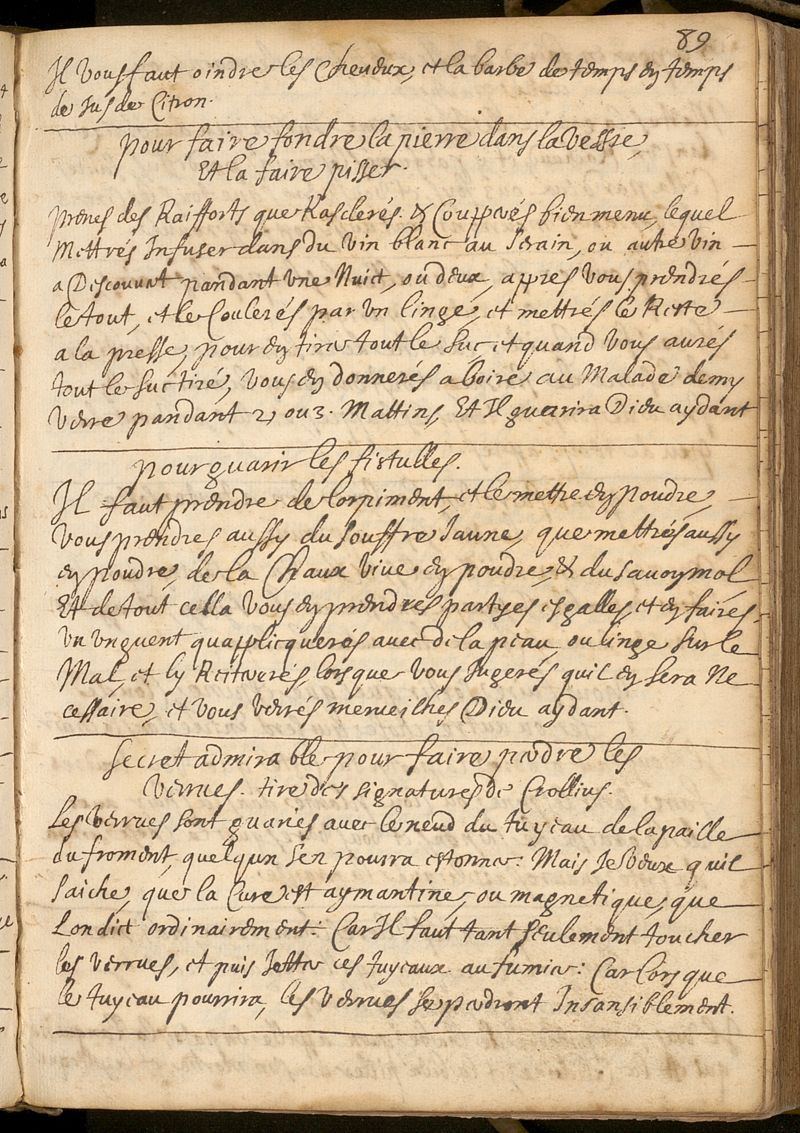 89
Il vous faut oindre les Cheveux, et la barbe de temps en temps
de Jus de Citron.
pour faire fondre la pierre dans la Vessie,
Et la faire pisser.
prenes des Raifforts que Rasclerés & Couppés bien menu, lequel
Mettrés Infuser dans du vin blanc au Serain, ou autre vin
a Descouvat pandant une Nuict, ou deux, appres vous prendrés
le tout, et le Coulerés par un linge, et mettrés le Reste
a la presse, pour en tirer tout le suc et quand vous aurés
tout le suc tiré, vous en donnerés a boire au Malade demy
verre pandant 2, ou 3. Mattins, Et Il guarira Dieu aydant
pour guarir les fistulles.
Il faut prendre de lorpiment, et le mettre en poudre,
vous prendres aussy du souffre Jaune, que mettrés aussy
en poudre, de la Chaux vive en poudre, & du savoy mol
Et de tout cella vous en prendres partyes esgalles, et en faires
un unguent quapplicquerés avec de la peau, ou linge sur le
Mal, et ly Reiterarés, lors que vous Jugerés quil en sera Ne
cessaire, et vous verrés merveilhes Dieu aydant.
Secret admirable pour faire perdre les
verrues. tire des signatures de Crollius.
Les verrues sont guaries avec le neud du tuyeau de la paille
du froment, quelqun s'en pourra estonner: Mais Je veux quil
saiche, que la Cure est aymantine, ou magnetique, que
Londict ordinairement: Car Il faut tant seulement toucher
les verrues, et puis Jetter ces tuyeaux au fumier: Car lors que
le tuyeau pourrira, les verrues se perdront Insansiblement.